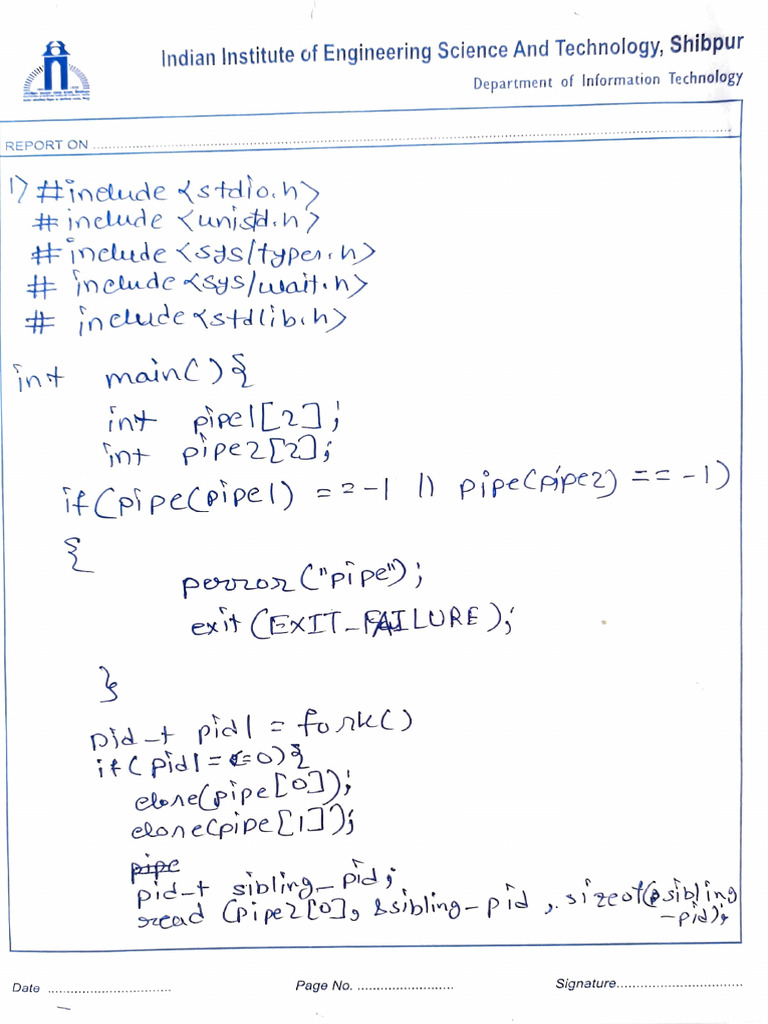 Indian Institute of Engineering Science And Technology, Shibpur
Department of Information Technology
REPORT ON
1) #include <stdio.h>
# include <unistd.h>
# include <sys/types.h>
# include <sys/wait.h>
# include <stdlib.h>
int main() {
int pipe1[2];
int pipe2[2];
if(pipe(pipe1) == -1 || pipe(pipe2) == -1)
{
perror("pipe");
exit(EXIT_FAILURE);
}
pid_t pid1 = fork()
if(pid1 == 0){
close(pipe[0]);
close(pipe[1]);
pipe
pid_t sibling_pid;
read (pipe2[0], &sibling_pid, sizeof(sibling
_pid);
Date
Page No.
Signature